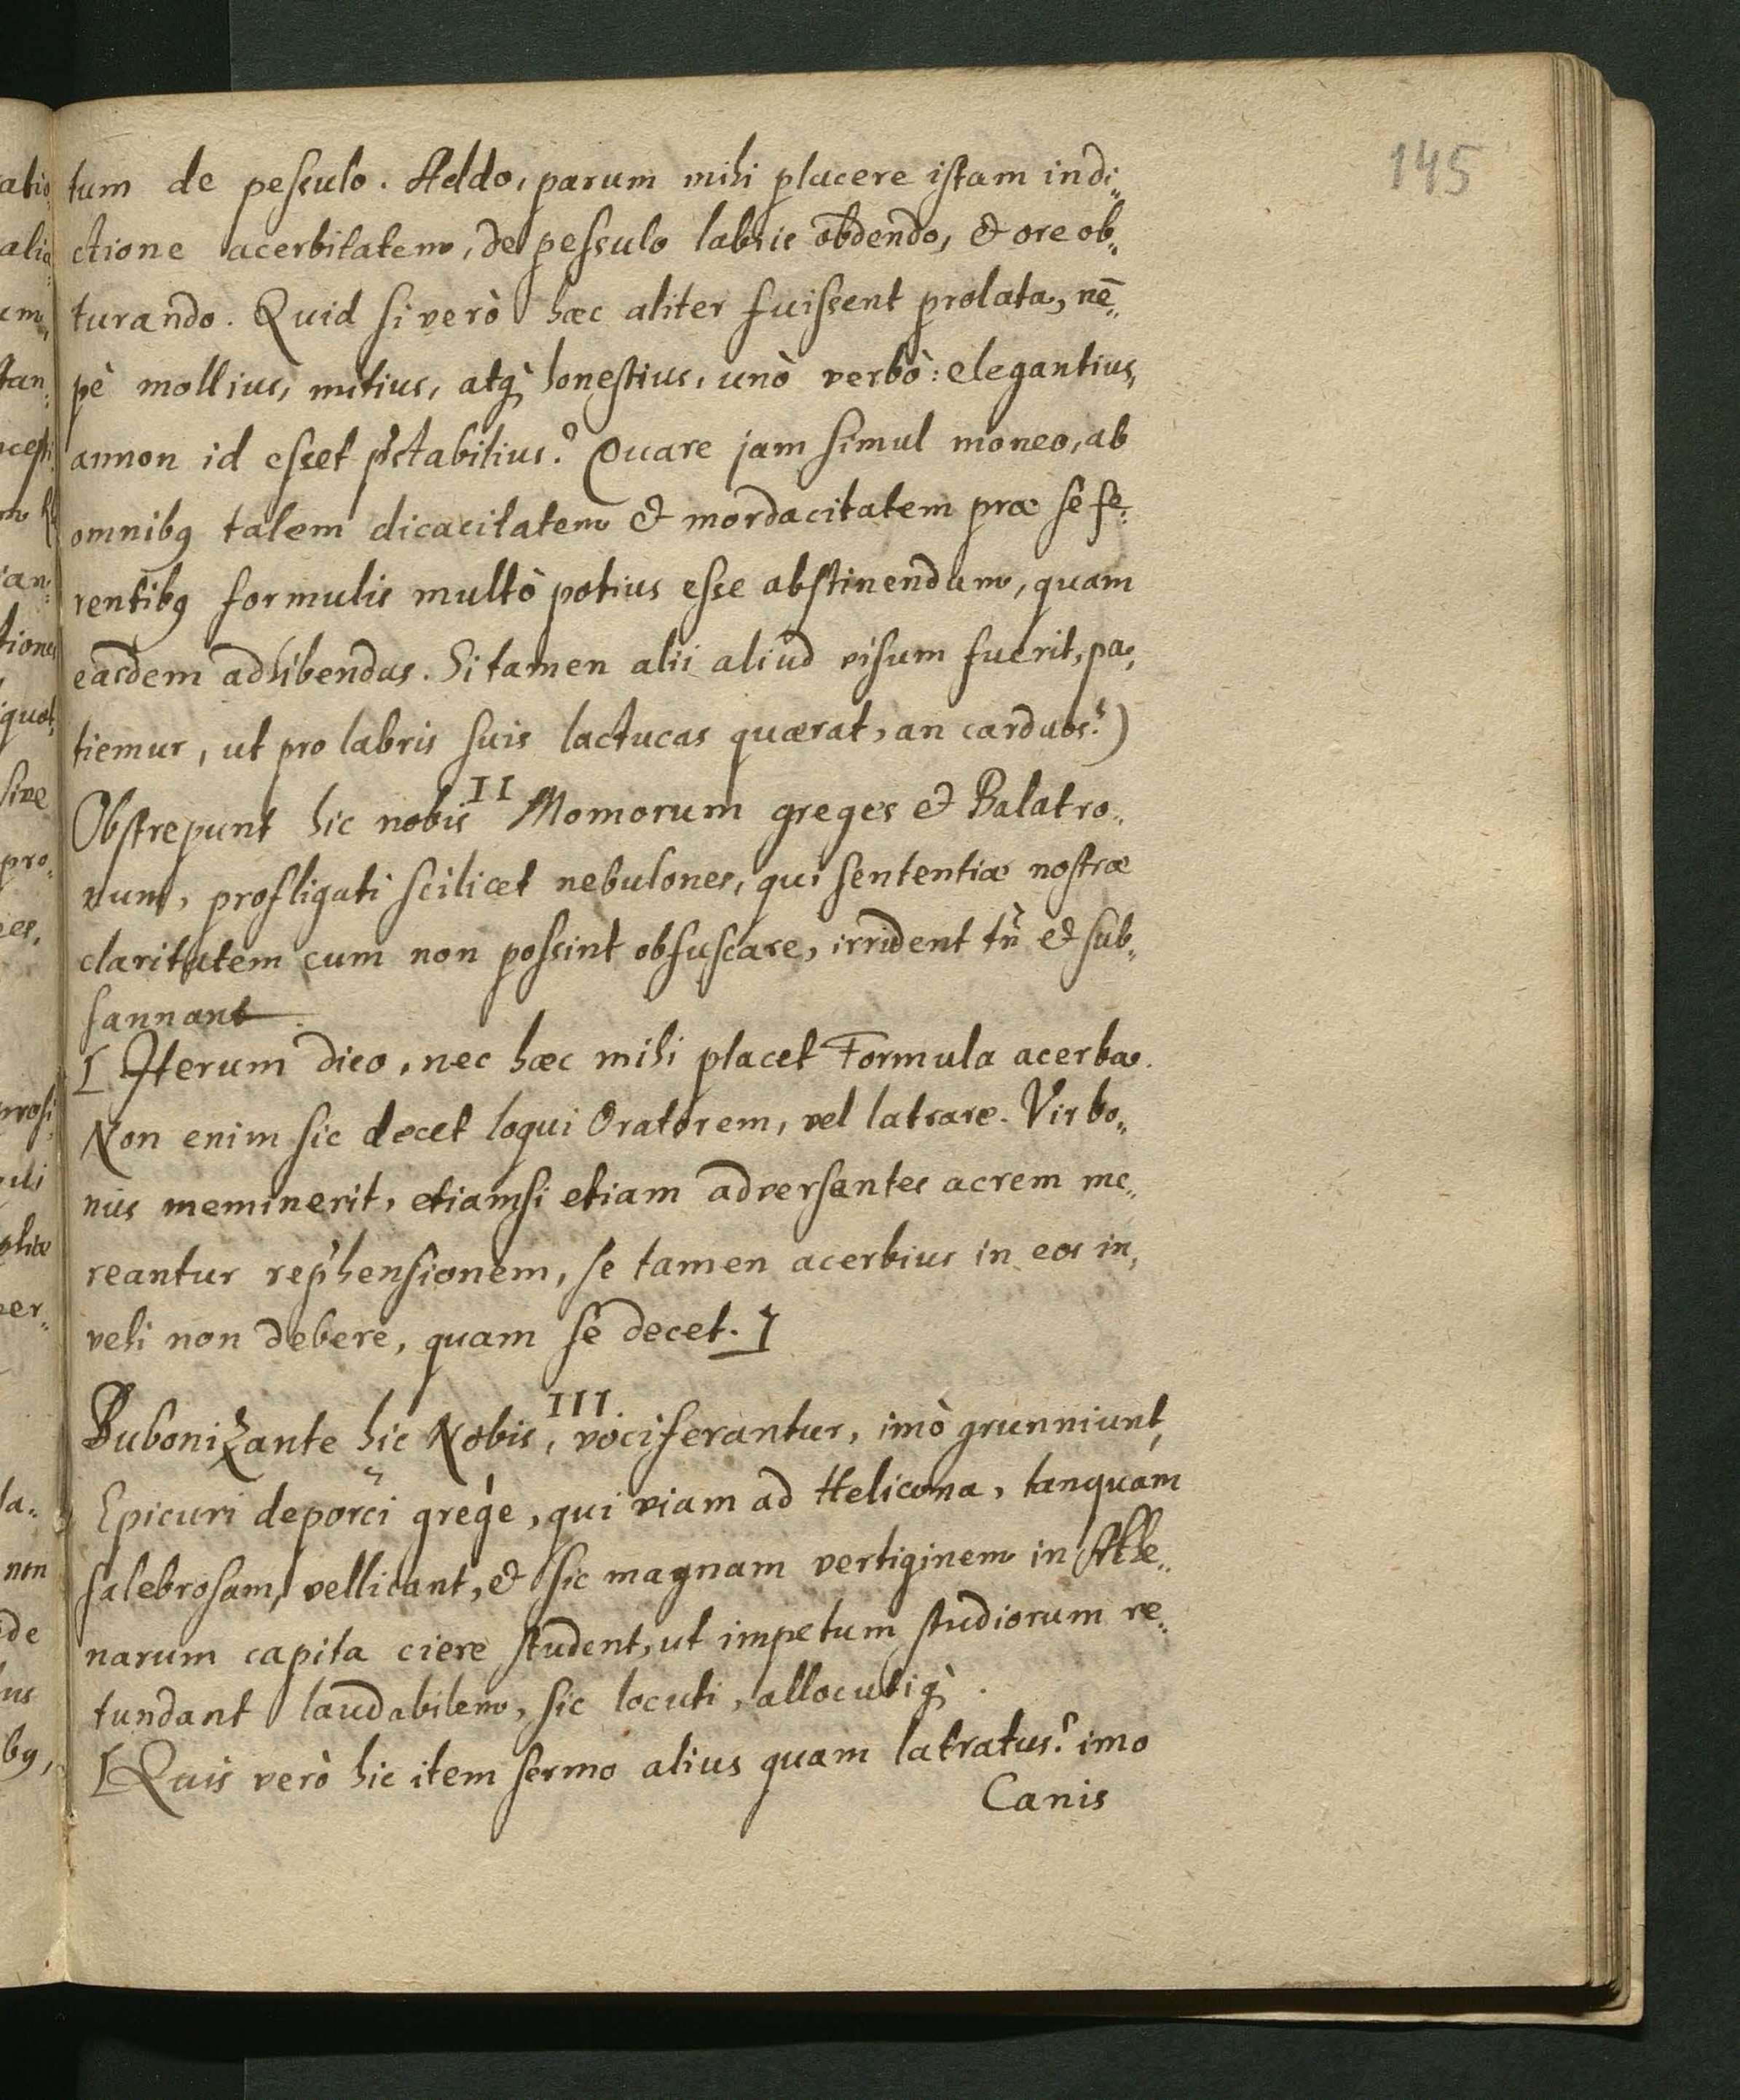 145
tum de pessulo. Addo, parum mihi placere istam indi„
ctione acerbitatem, de pessulo labris obdendo, & ore ob„
turando. Quid si verò hæc aliter fuissent prolata, nē„
pè mollius, mitius, atq̀ honestius, unò verbò: elegantius,
annon id esset p͛stabilius? Quare jam simul moneo, ab
omnibꝫ talem dicacitatem & mordacitatem præ se fe„
rentibꝫ formulis multò potius esse abstinendum, quam
easdem adhibendas. Si tamen alii aliud visum fuerit, pa„
tiemur, ut pro labris suis lactucas quærat, an carduos?)
II
Obstrepunt hic nobis Momorum greges & Balatro„
num, profligati scilicet nebulones, qui sententiæ nostræ
claritatem cum non possint obfuscare, irrident tñ & sub„
sannant.
[Iterum dico, nec hæc mihi placet Formula acerba.
Non enim sic decet loqui Oratorem, vel latrare. Vir bo„
nus meminerit, etiamsi etiam adversantes acrem me„
reantur rep͛hensionem, se tamen acerbius in eos in„
vehi non debere, quam se decet.]
III.
Bubonizante hic Nobis, vociferantur, imò grunniunt,
Epicuri de porci grege, qui viam ad Helicona, tanquam
salebrosam, vellicant, & sic magnam vertiginem in Athe„
narum capita ciere student, ut impetum studiorum re„
tundant laudabilem, sic locuti, allocutiq̀.
[Quis verò hic item sermo alius quam latratus? imo
Canis